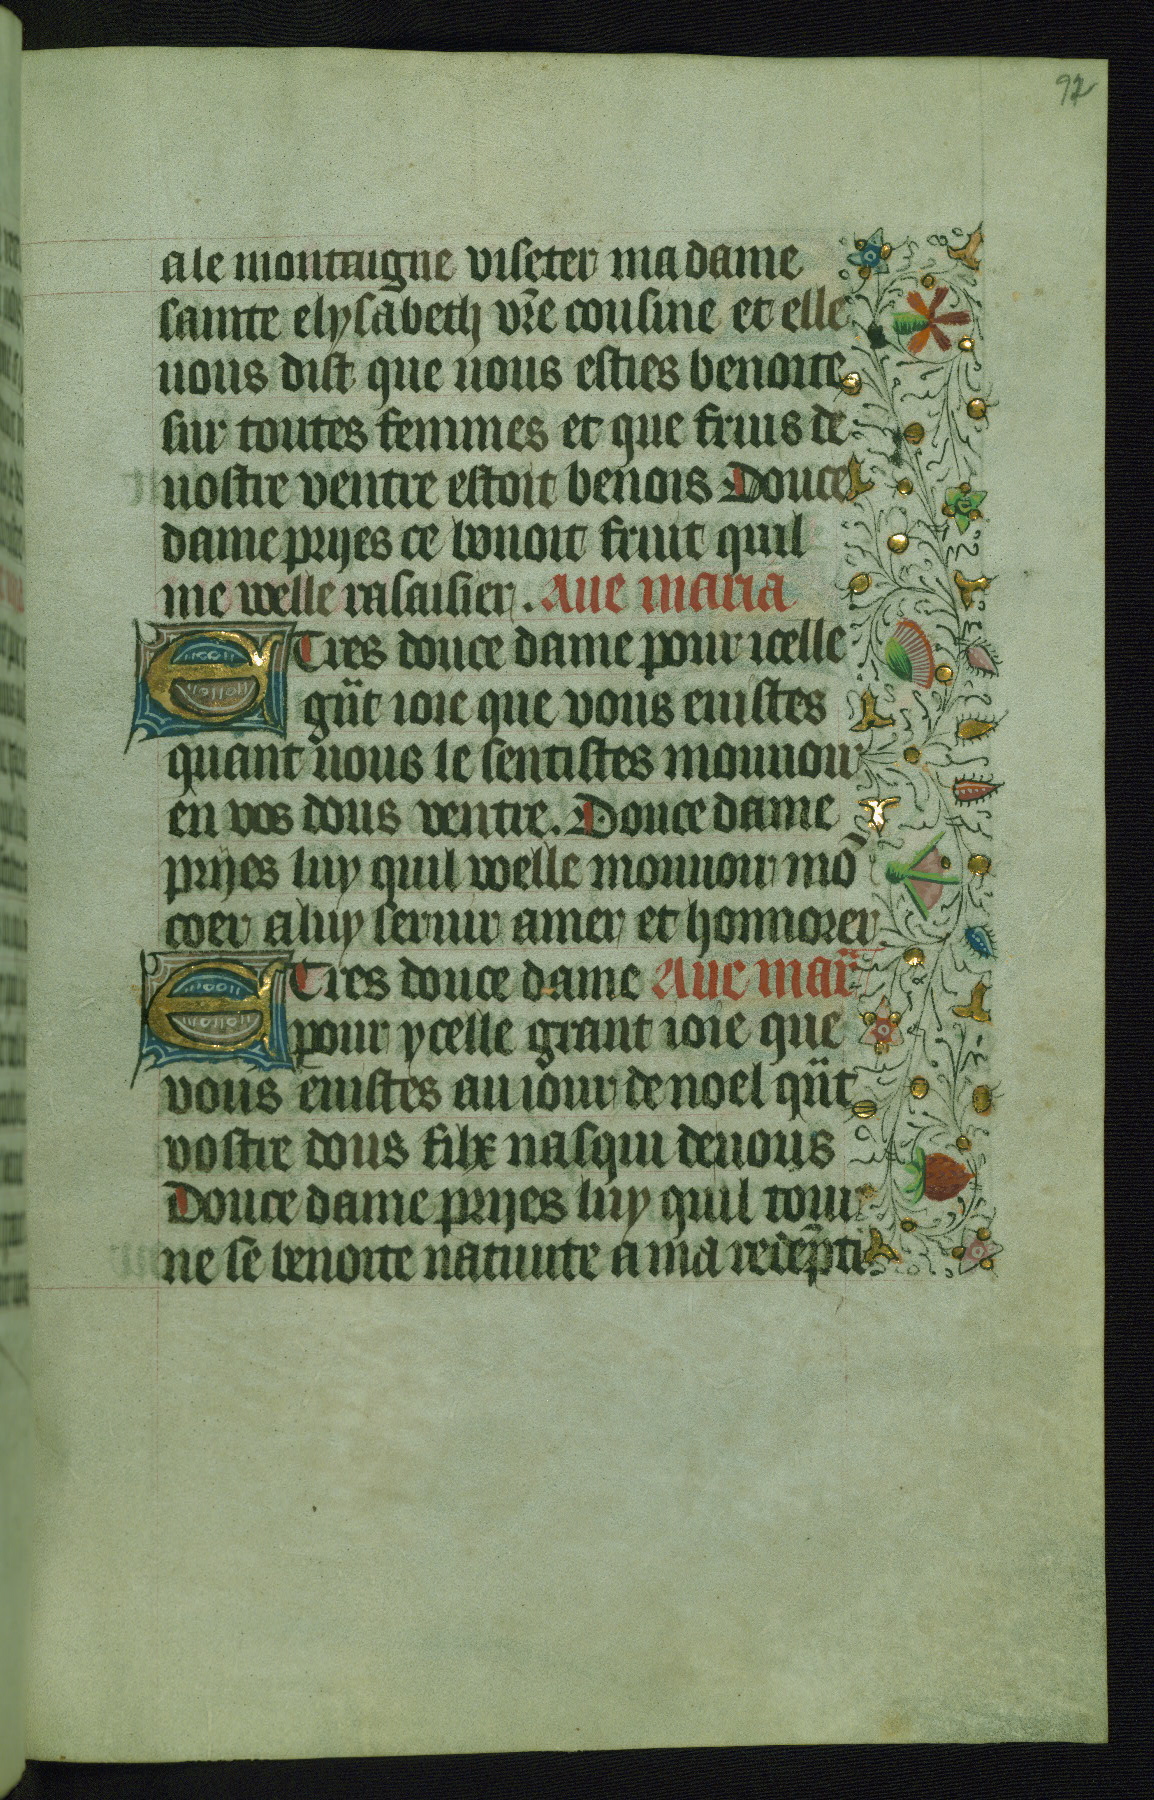 97
ale montaigne viseter ma dame
sainte elysabeth vr̄e cousine et elle
uous dist que uous esties benoite
sur toutes femmes et que fruis de
uostre ventre estoit benois Douce
dame pryes ce bonoit fruit quil
me welle rasaisier. Aue maria
E Tres douce dame pour icelle
gn̄t ioie que vous euistes
quant uous le sentistes mouuoir
en vos dous ventre. Douce dame
pryes luy quil welle mouuoir mō
coer a luy seruir amer et honnorer
E Tres douce dame Aue mar̄
pour ycelle grant ioie que
vous euistes au iour de noel qn̄t
vostre dous filx nasqui de uous
Douce dame pryes luy quil tour
ne se benoite natiuite a ma redēpti